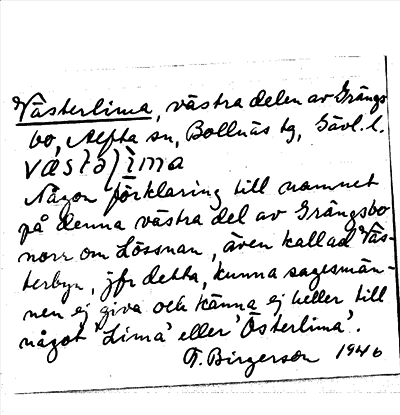 Västerlima, västra delen av Grängs
bo, Alfta sn, Bollnäs tg, Gävl. l.
Någon förklaring till namnet
på denna västra del av Grängsbo
norr om Lössnan, även kallad Väs-
terbyn, jfr detta, kunna sagesmän-
nen ej giva och känna ej heller till
något 'Lima' eller 'Österlima'.
F. Birgerson 1940